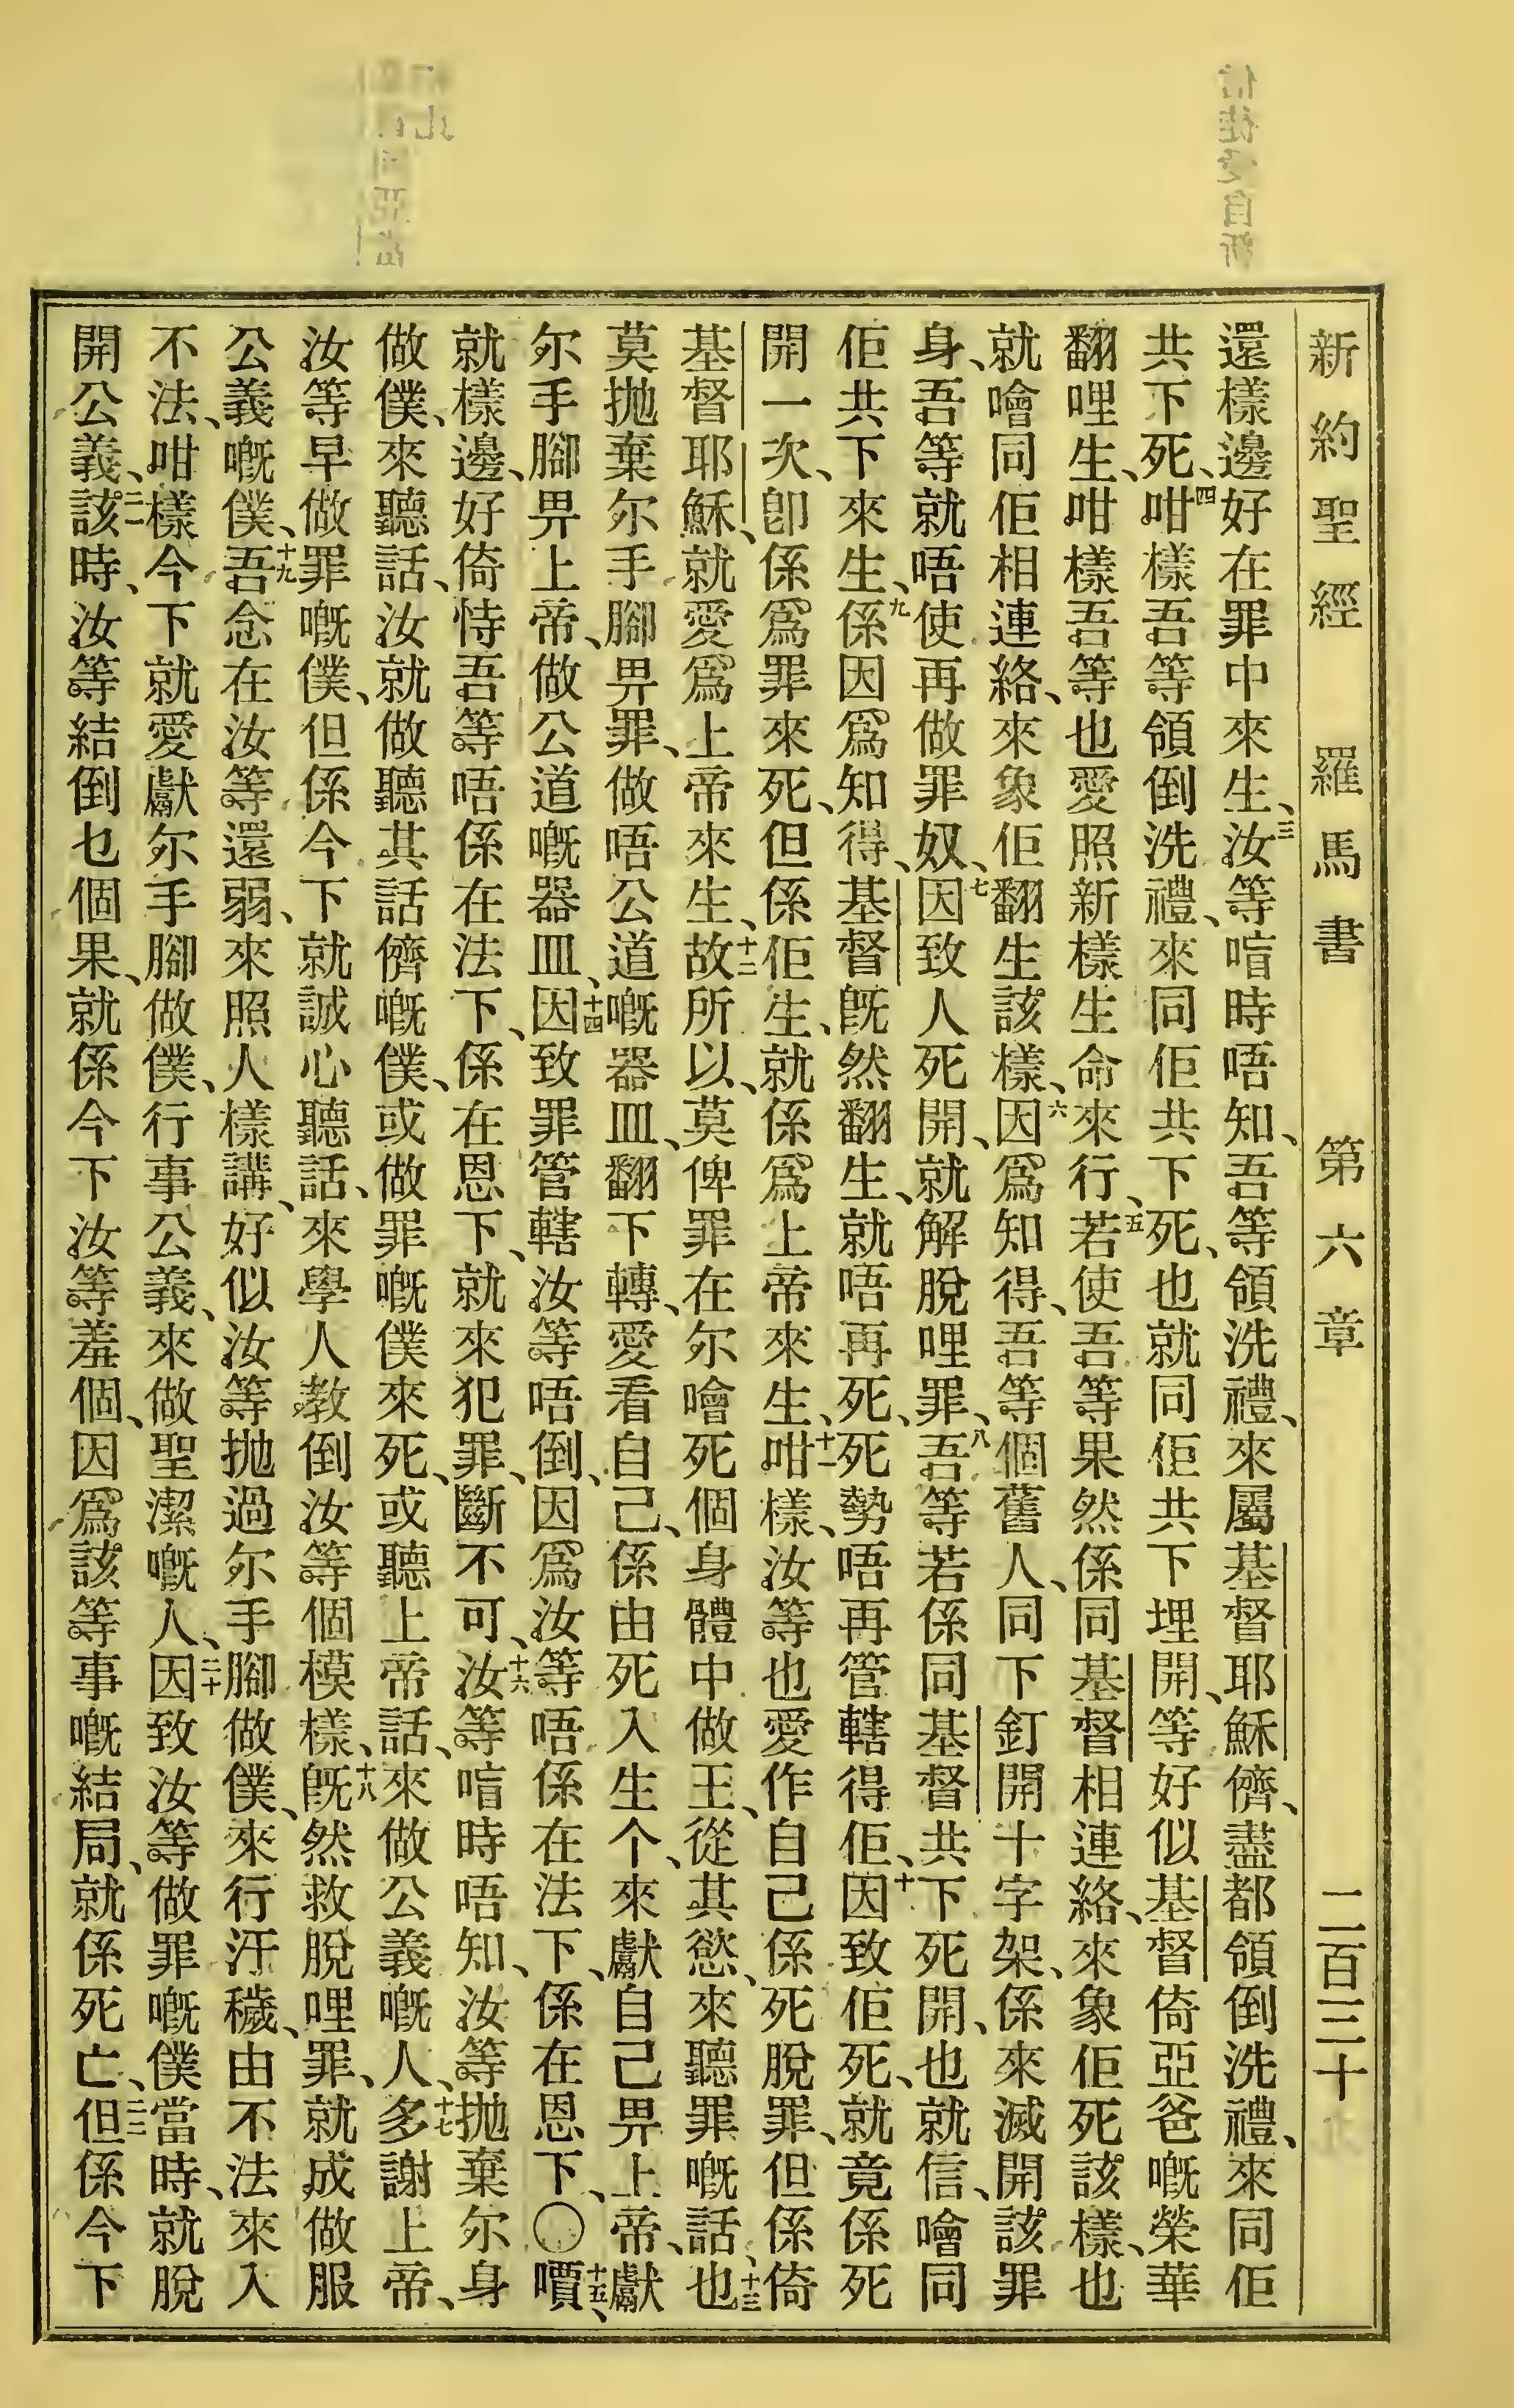 新約聖經　羅馬書　第六章　二百三十
還樣邊好在罪中來生、三汝等喧時唔知、吾等領洗禮、來屬基督耶穌儕、盡都領倒洗禮、來同佢
共下死、四咁樣吾等領倒洗禮、來同佢共下死、也就同佢共下埋開、等好似基督倚亞爸嘅榮華
翻哩生、咁樣吾等也愛照新樣生命來行、五若使吾等果然係同基督相連絡、來象佢死該樣、也
就噲同佢相連絡、來象佢翻生該樣、六因爲知得、吾等個舊人、同下釘開十字架、係來滅開該罪
身、吾等就唔使再做罪奴、七因致人死開、就解脫哩罪、八吾等若係同基督共下死開、也就信、噲同
佢共下來生、九係因爲知得、基督既然翻生、就唔再死、死勢唔再管轄得佢、十因致佢死、就竟係死
開一次、卽係爲罪來死、但係佢生、就係爲上帝來生、十一咁樣、汝等也愛作自己係死脫罪、但係倚
基督耶穌、就愛爲上帝來生、十二故所以、莫俾罪在尔噲死個身體中做王、從其慾、來聽罪嘅話、十三也
莫抛棄尔手腳畀罪、做唔公道嘅器皿、翻下轉、愛看自己、係由死入生个、來獻自己畀上帝、獻
尔手腳畀上帝、做公道嘅器皿、十四因致罪管轄汝等唔倒、因爲汝等唔係在法下、係在恩下、〇十五嘳、
就樣邊、好倚恃吾等唔係在法下、係在恩下、就來犯罪、斷不可、十六汝等喧時唔知、汝等抛棄尔身
做僕、來聽話、汝就做聽其話儕嘅僕、或做罪嘅僕來死、或聽上帝話、來做公義嘅人、十七多謝上帝、
汝等早做罪嘅僕、但係今下就誠心聽話、來學人教倒汝等個模樣、十八既然救脫哩罪、就成做服
公義嘅僕、十九吾念在汝等還弱、來照人樣講、好似汝等抛過尔手腳做僕、來行汙穢、由不法來入
不法、咁樣今下就愛獻尔手腳做僕、行事公義、來做聖潔嘅人、二十因致汝等做罪嘅僕當時、就脫
開公義、二一該時、汝等結倒乜個果、就係今下汝等羞個、因爲該等事嘅結局、就係死亡、二二但係今下